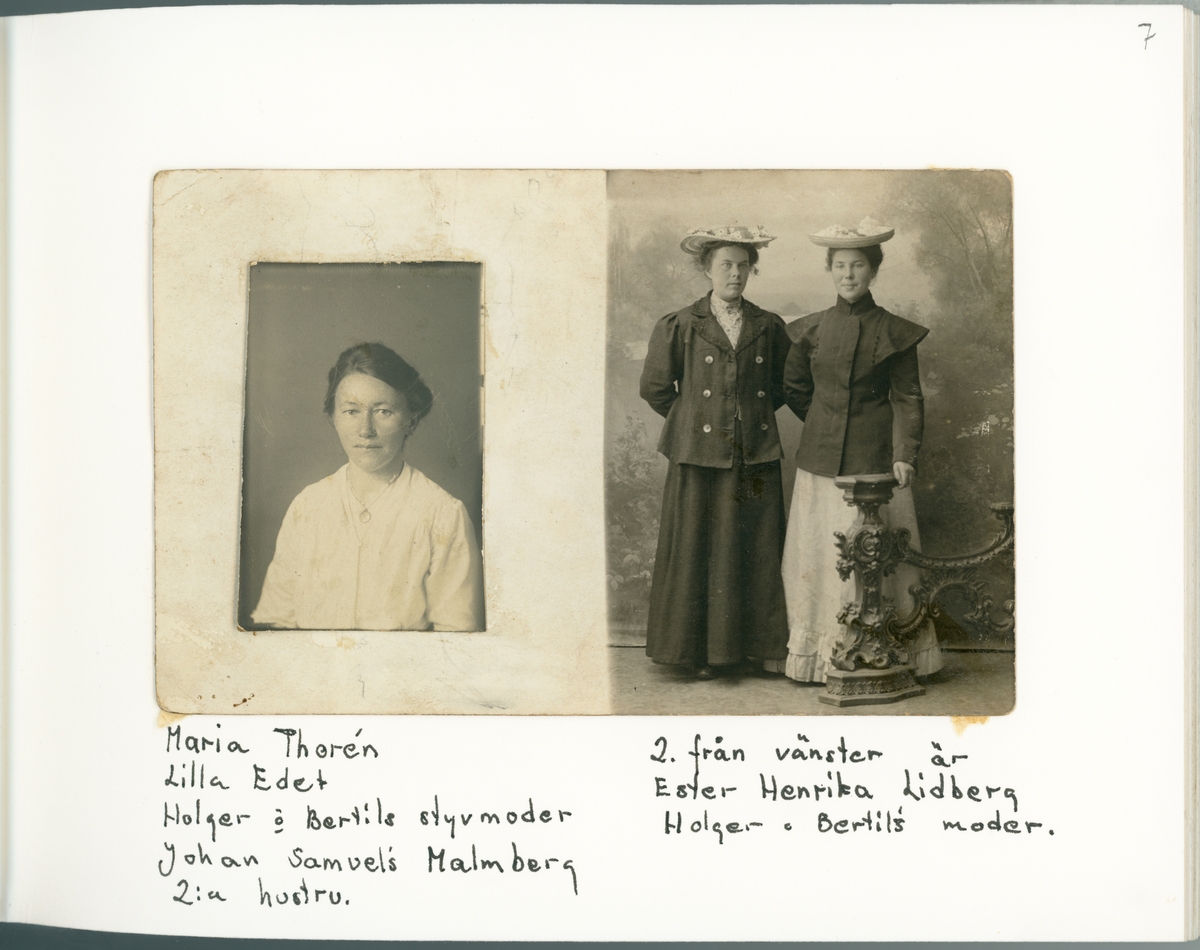 7
Maria Thorén
Lilla Edet
Holger o Bertils styvmoder
Johan Samuel's Malmberg
2:a hustru.
2. från vänster är
Ester Henrika Lidberg
Holger o Bertil's moder.